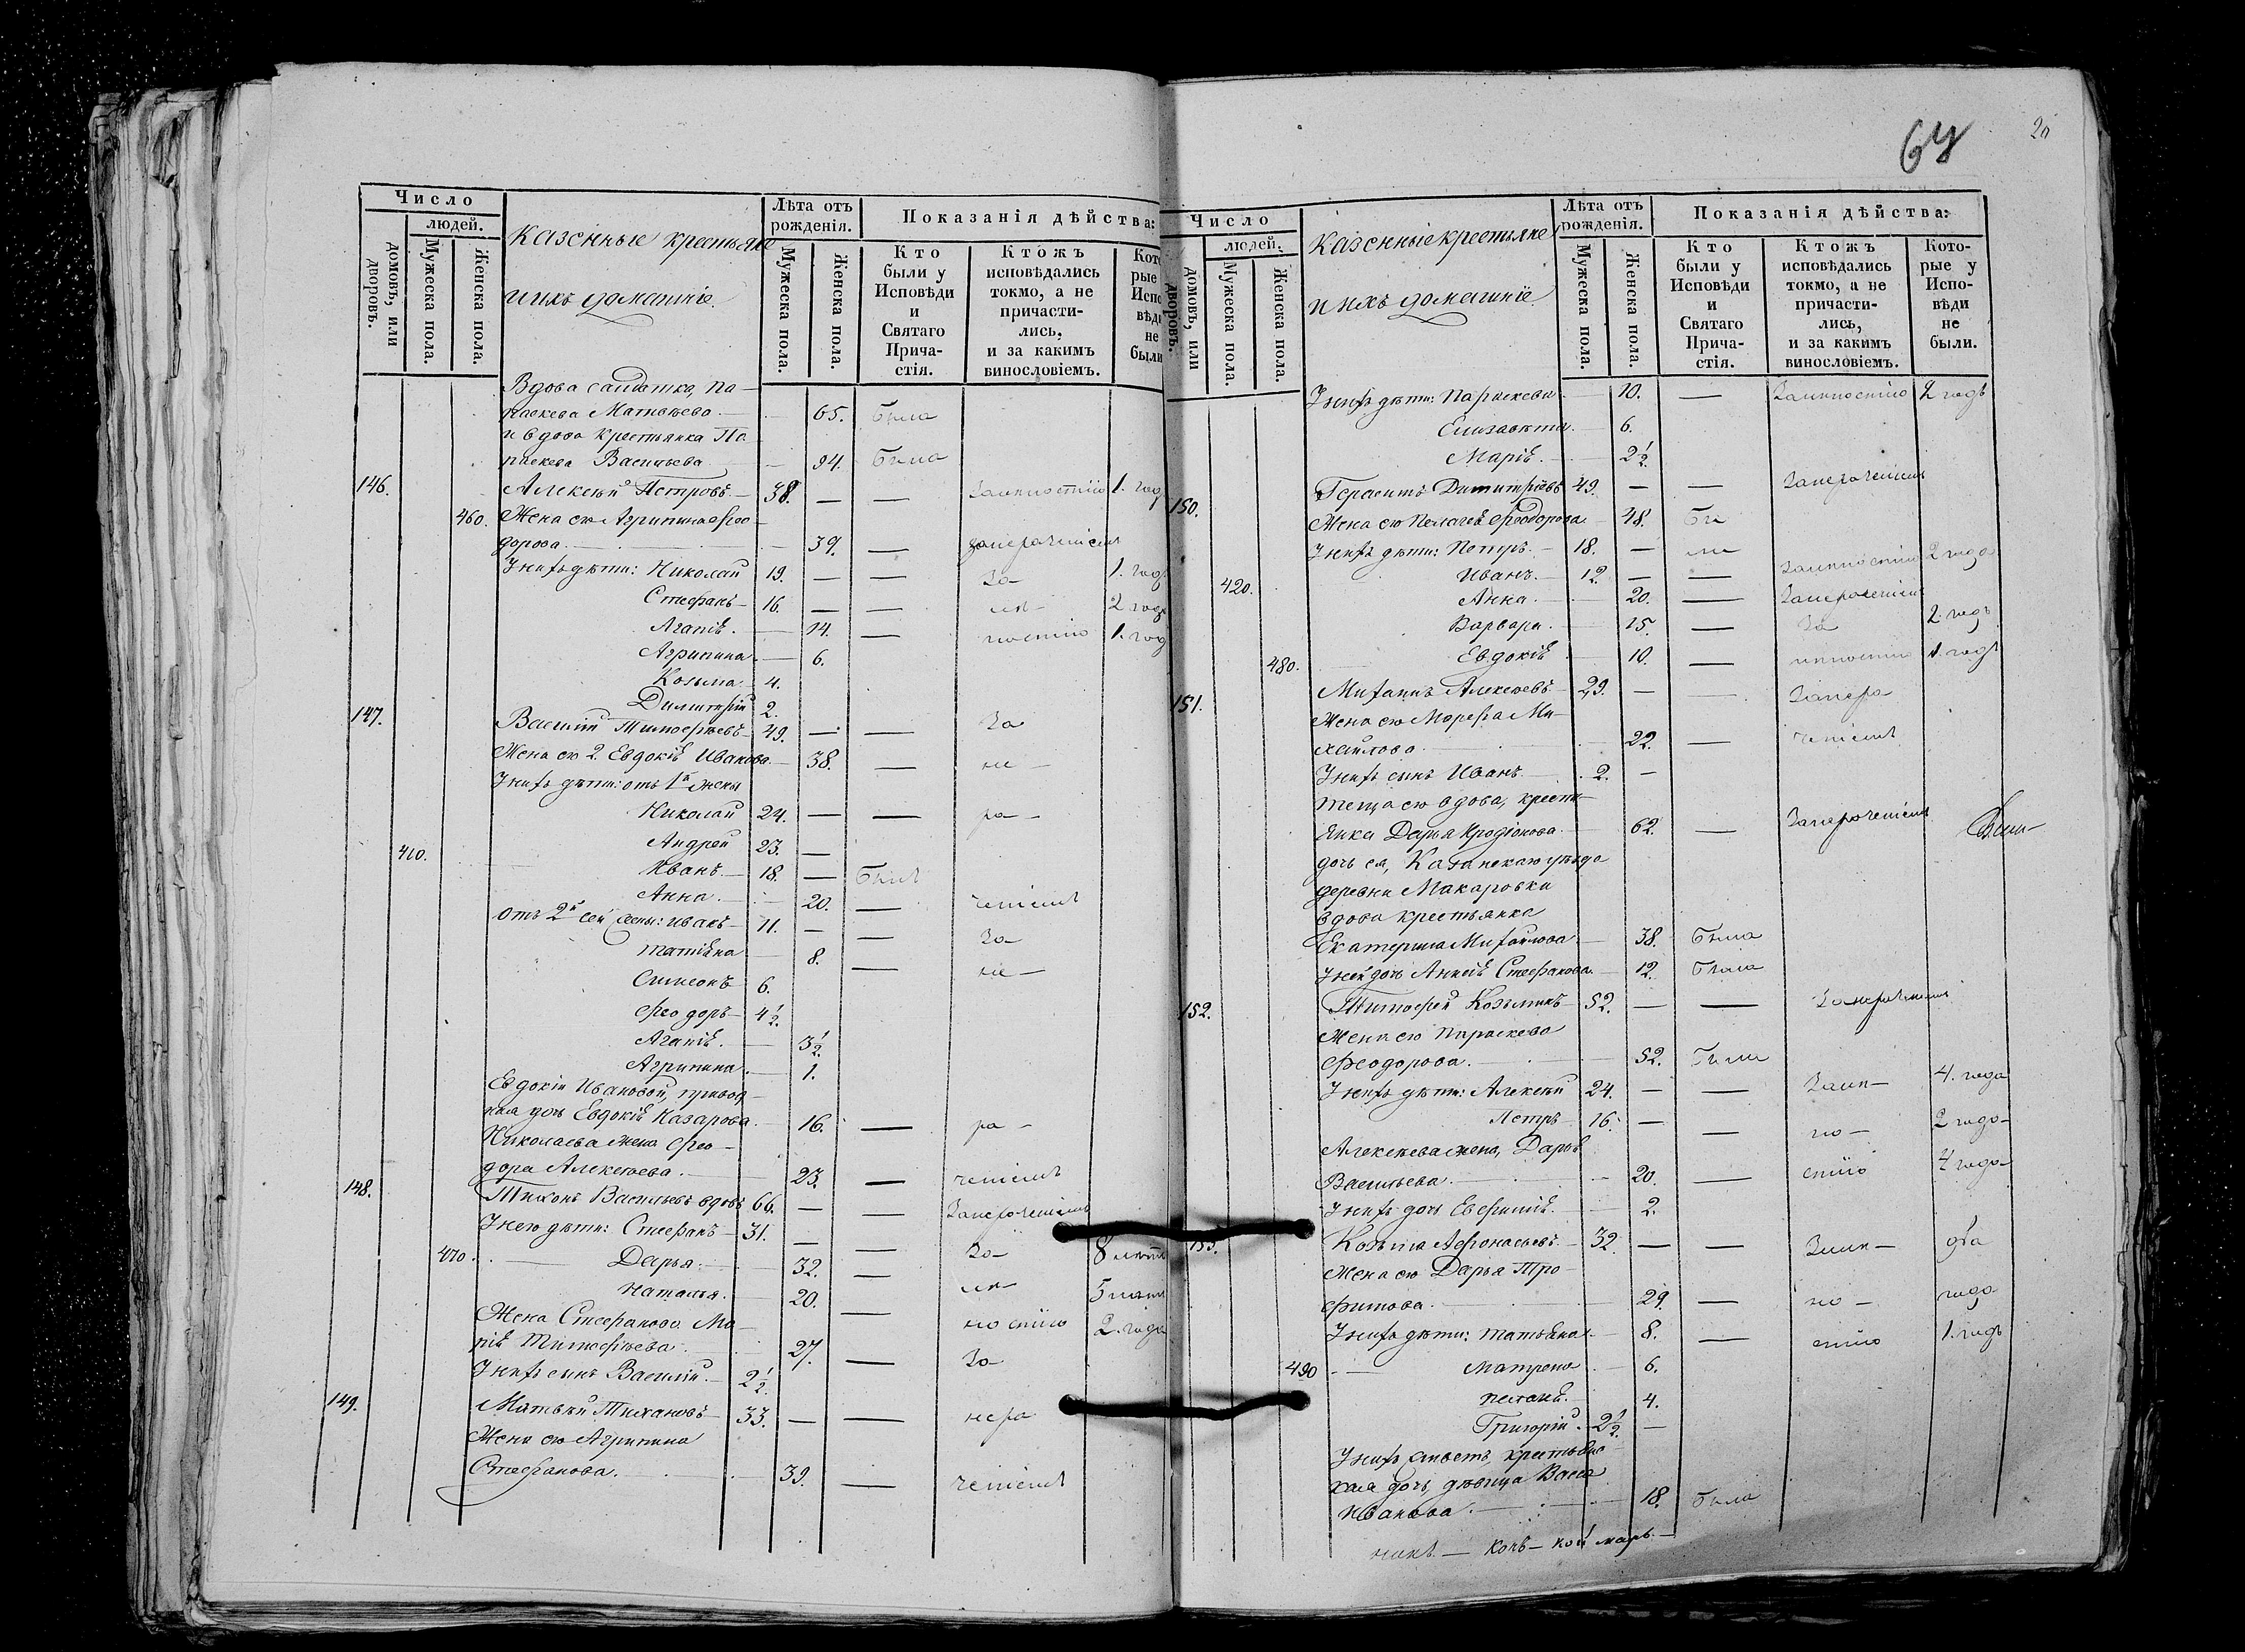 Число
людей.
домовъ, или дворовъ.
Мужеска пола.
Женска пола.
Казенные крестьяне
и ихъ домашніе.
Лѣта отъ рожденія.
Мужеска пола.
Женска пола.
Показанія дѣйства:
Кто были у Исповѣди и Святаго Прича- стія.
Ктожъ исповѣдались токмо, а не причасти- лись, и за какимъ винословіемъ.
Кото рые Испо вѣди не были
Вдова салдатка, Па-
раскева Матвѣева — 65. Была
и вдова крестьянка Па
раскева Васильева — 94. Была
146. Алексѣй Петровъ — 38. — — За нпостію 1. год
460. Жена ею Агрипина Фео-
дорова — 39. — за нераченіемъ
У нихъ дѣти: Николай 19. — — За 1. год
Стефанъ — 16. — — 2 года
Агапіѣ. — 14. — ностію 1. год
Агрипина — 6.
Козьма — 4.
Димитрій 2.
147. Василій Тимофѣевъ — 49. — — За
Жена ею 2. Евдокіѣ Иванова — 38. — не —
У нихъ дѣти: отъ 1й жены
Николай 24. — — ра —
Андрей 23. —
410. Иванъ — 18. — Былъ
Анна. — 20. — ченіемъ
отъ 2й сей жены: Иванъ — 11. — — За
Татіана — 8. — не —
Симеонъ 6.
Феодоръ — 4½.
Агапіѣ. — 3½.
Агрипина — 1.
Евдокіи Ивановой, привод-
ная дочь Евдокіѣ Назарова — 16. — ра —
Николаева жена Фео-
дора Алексѣева. — 23. — ченіемъ
148. Тихонъ Васильевъ вдовъ 66. — — За нераченіемъ
У нею дѣти: Стефанъ — 31. — — За — 8 лѣтъ
470. — Дарья. — 32. — 5 лѣтъ
Наталья. — 20. — ностію 2. года
Жена Стефанова Ма-
ріѣ Тимофѣева. — 27. — За
У нихъ сынъ Василій. — 2½.
149. Матвѣй Тихановъ — 33. — — нера
Жена ею Агрипина
Стефанова. — 39. — ченіемъ
64
20
Число
людей.
домовъ, или дворовъ.
Мужеска пола.
Женска пола.
Казенные крестьяне
и ихъ домашніе
Лѣта отъ рожденія.
Мужеска пола.
Женска пола.
Показанія дѣйства:
Кто были у Исповѣди и Святаго Прича- стія.
Ктожъ исповѣдались токмо, а не причасти- лись, и за какимъ винословіемъ.
Кото- рые у Испо- вѣди не были.
У нихъ дѣти: Параскева — 10. — 2 годъ
Елизавета. — 6.
Маріѣ. — 2½.
150. Герасимъ Димитріевъ 49. — — За нераченіемъ
Жена ею Пелагеѣ Феодорова — 48. Бы
У нихъ дѣти: Петръ. — 18. — ли
420. Иванъ. — 12. — — 2 года
Анна. — 20. — За нераченіемъ
Варвара. — 15. — За 2. годъ
480. Евдокіѣ — 10. — 1. годъ
151. Михаилъ Алексѣевъ — 29. — — За нера
Жена ею Марфа Ми-
хайлова — 22. — ченіемъ
У нихъ сынъ Иванъ — 2. —
теща ею вдова, кресть-
янка Дарья Иродіонова — 62. — За нераченіемъ
дочь ея, Казанскаго уѣзда
деревни Макаровки
вдова крестьянка
Екатерина Михайлова — 38. Была
У ней дочь Стефанова. — 12. Была
152. Тимофей Козьминъ — 52. — — За нераченіемъ
Жена ею Параскева
Феодорова. — 52. Была
У нихъ дѣти: Алексѣй 24. — — 4. года
Петръ — 16. — — но — 2 года —
Алексѣева жена, Дарьѣ
Васильева. — 20. — стію 4 года —
У нихъ дочь Евфиміѣ. — 2.
153. Козьма Афонасьевъ. — 32. — — два
Жена ею Дарья Тро-
фимова. — 29. — но — года
У нихъ дѣти: Татьяна — 8. — стію 1. годъ
490 — Матрена — 6.
4.
Григорій. — 2½. —
дочь, дѣвица Васса
Иванова. — 18. Была